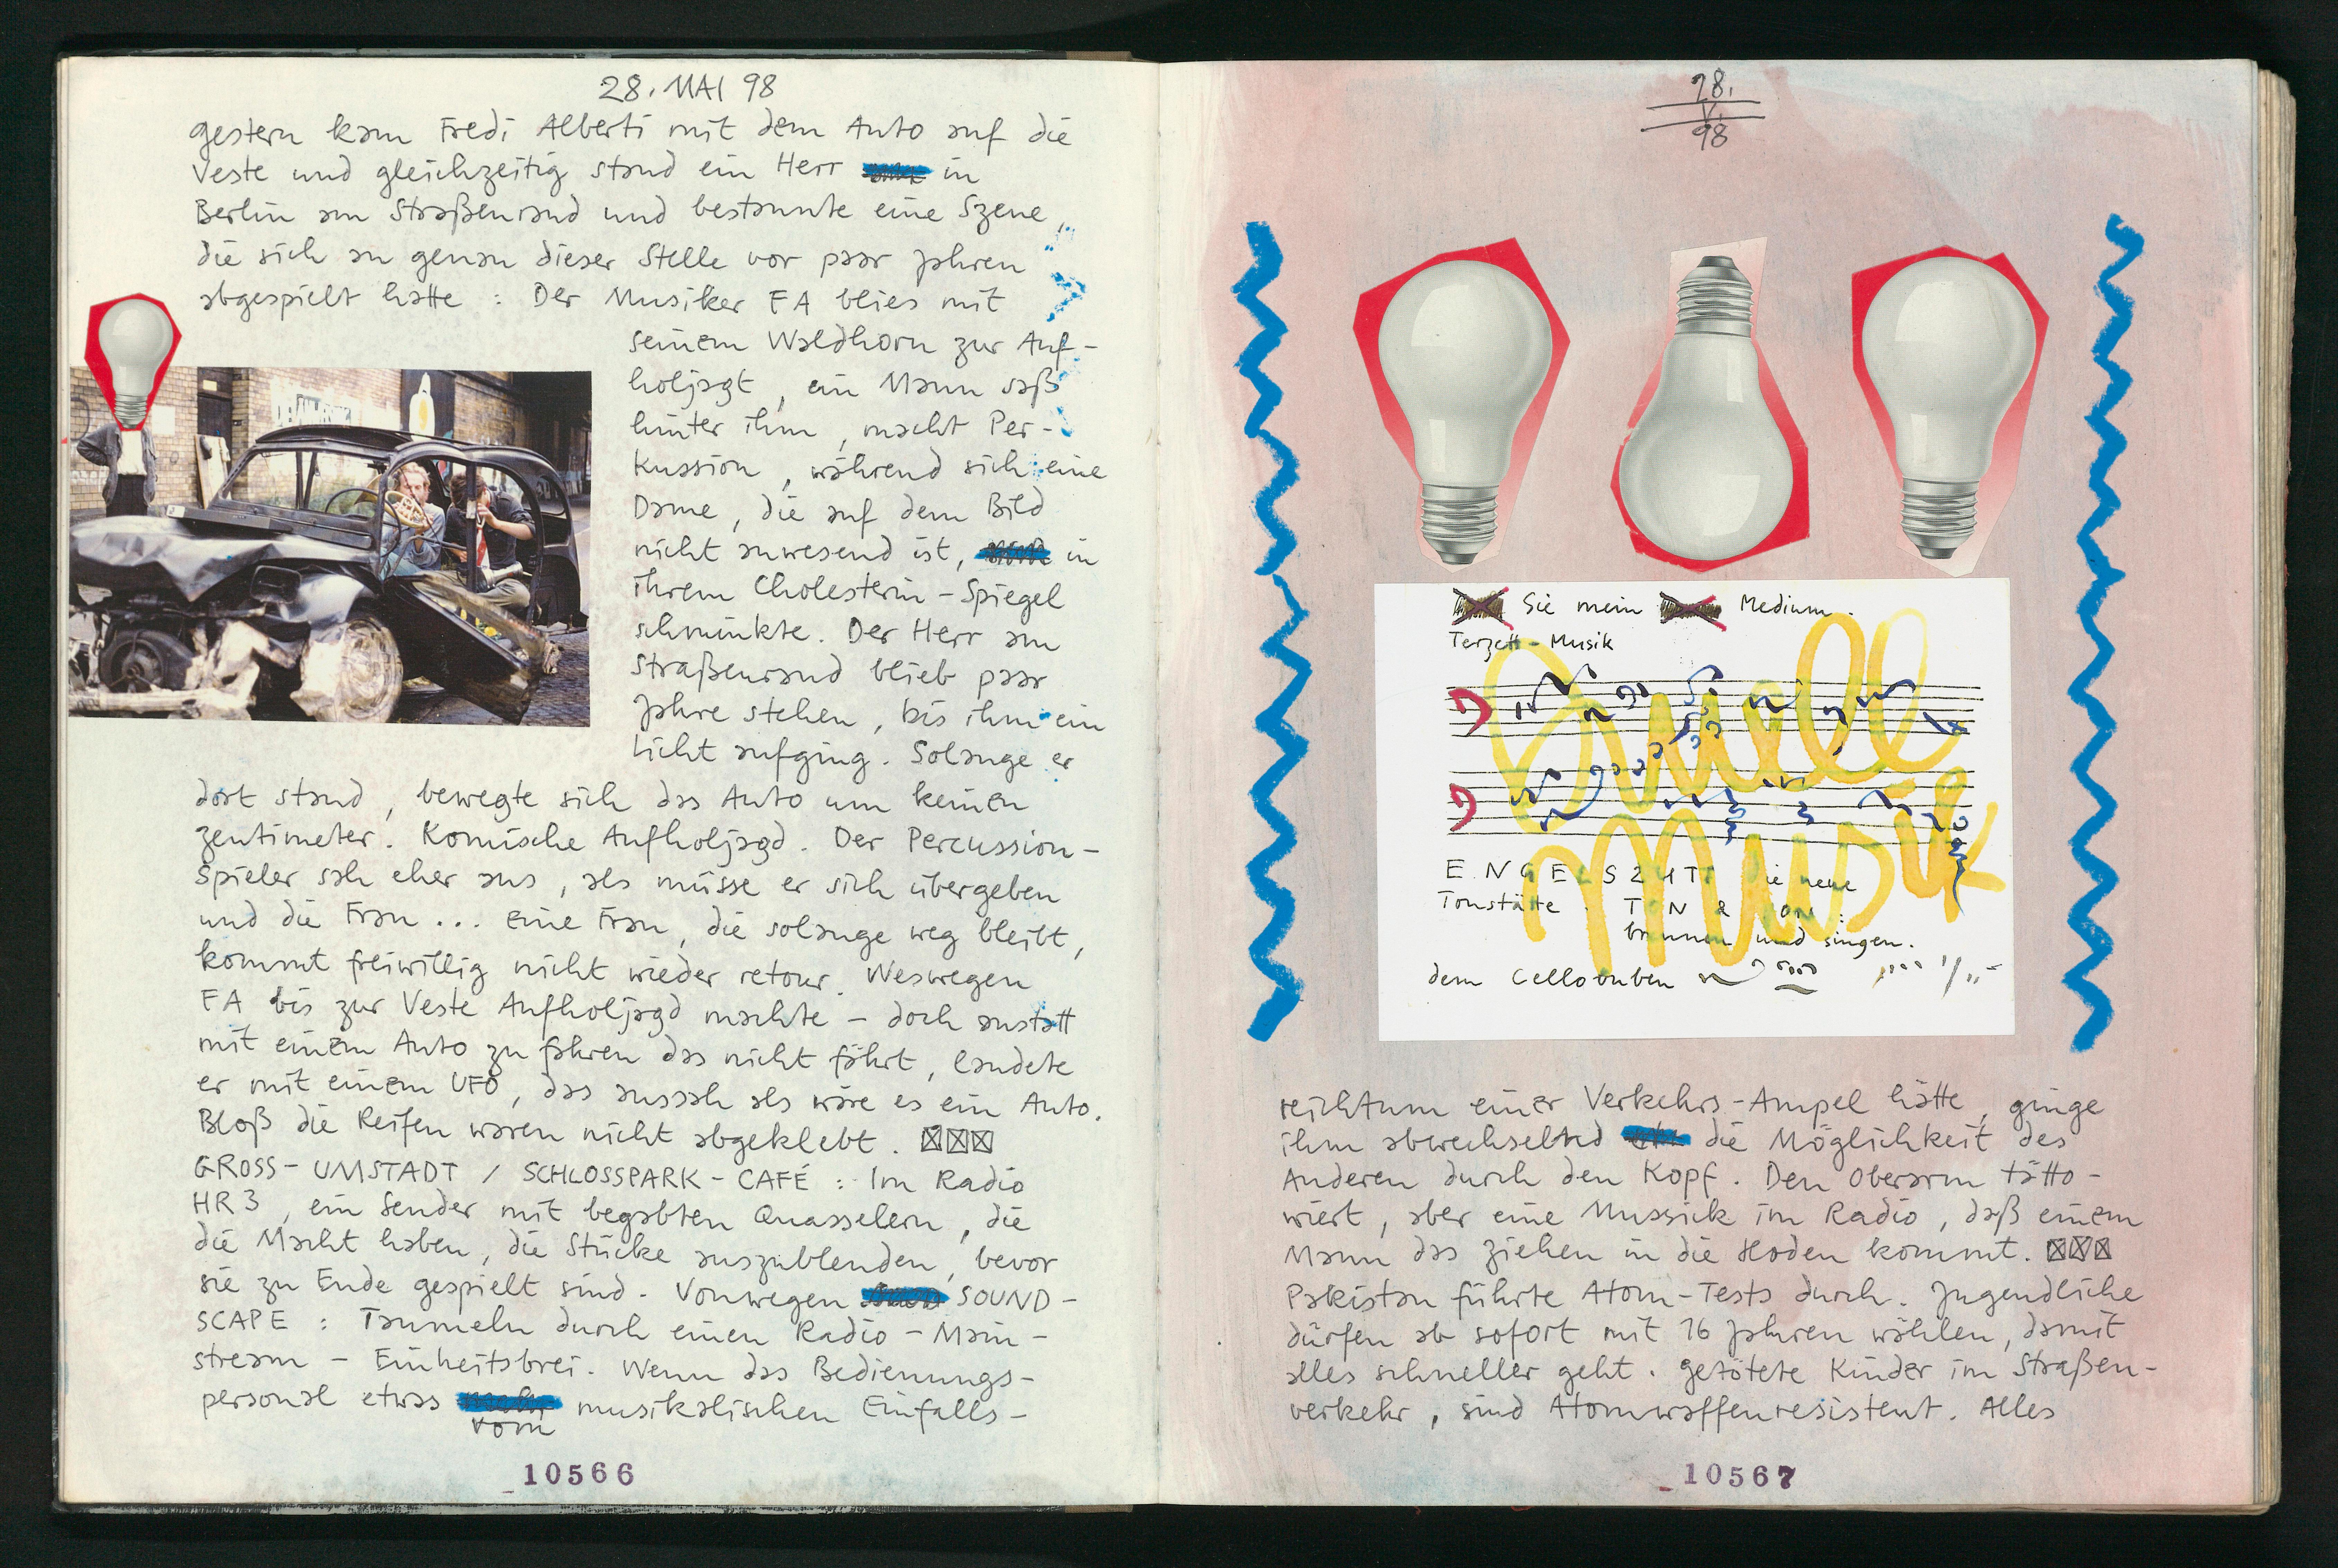 28. MAI 98
gestern kam Fredi Alberti mit dem Auto auf die
Veste und gleichzeitig stand ein Herr in
Berlin am Straßenrand und bestaunte eine Szene,
die sich an genau dieser Stelle vor paar Jahren
abgespielt hatte : Der Musiker FA blies mit
seinem Waldhorn zur Auf-
holjagt, ein Mann saß
hinter ihm, macht Per-
kussion, während sich eine
Dame, die auf dem Bild
nicht anwesend ist, in
ihrem Cholesterin-Spiegel
schminkte. Der Herr am
Straßenrand blieb paar
Jahre stehen, bis ihm ein
Licht aufging. Solange er
dort stand, bewegte sich das Auto um keinen
zentimeter. Komische Aufholjagd. Der Percussion-
Spieler sah eher aus, als müsse er sich übergeben
und die Frau ... eine Frau, die solange weg bleibt,
kommt freiwillig nicht wieder retour. Weswegen
FA bis zur Veste Aufholjagd machte - doch anstatt
mit einem Auto zu fahren das nicht fährt, landete
er mit einem UFO, das aussah als wäre es ein Auto.
Bloß die Reifen waren nicht abgeklebt.
GROSS-UMSTADT / SCHLOSSPARK-CAFÉ : Im Radio
HR3, ein Sender mit begabten Quasselern, die
die Macht haben, die Stücke auszublenden, bevor
sie zu Ende gespielt sind. Vonwegen SOUND-
SCAPE : Taumeln durch einen Radio-Main-
stream - Einheitsbrei. Wenn das Bedienungs-
personal etwas vom musikalischen Einfalls-
10566
28.
V.
98
Sie mein Medium.
Terzett-Musik
Musik
ENGELSZUTT die neue
Tonstätte. TON & TON :
brennen und singen.
dem Cellobuben
reichtum einer Verkehrs-Ampel hätte, ginge
ihm abwechselnd die Möglichkeit des
Anderen durch den Kopf. Den Oberarm tätto-
wiert, aber eine Mussick im Radio, daß einem
Mann das ziehen in die Hoden kommt.
Pakistan führte Atom-Tests durch. Jugendliche
dürfen ab sofort mit 16 Jahren wählen, damit
alles schneller geht. getötete Kinder im Straßen-
verkehr, sind Atomwaffenresistent. Alles
10567